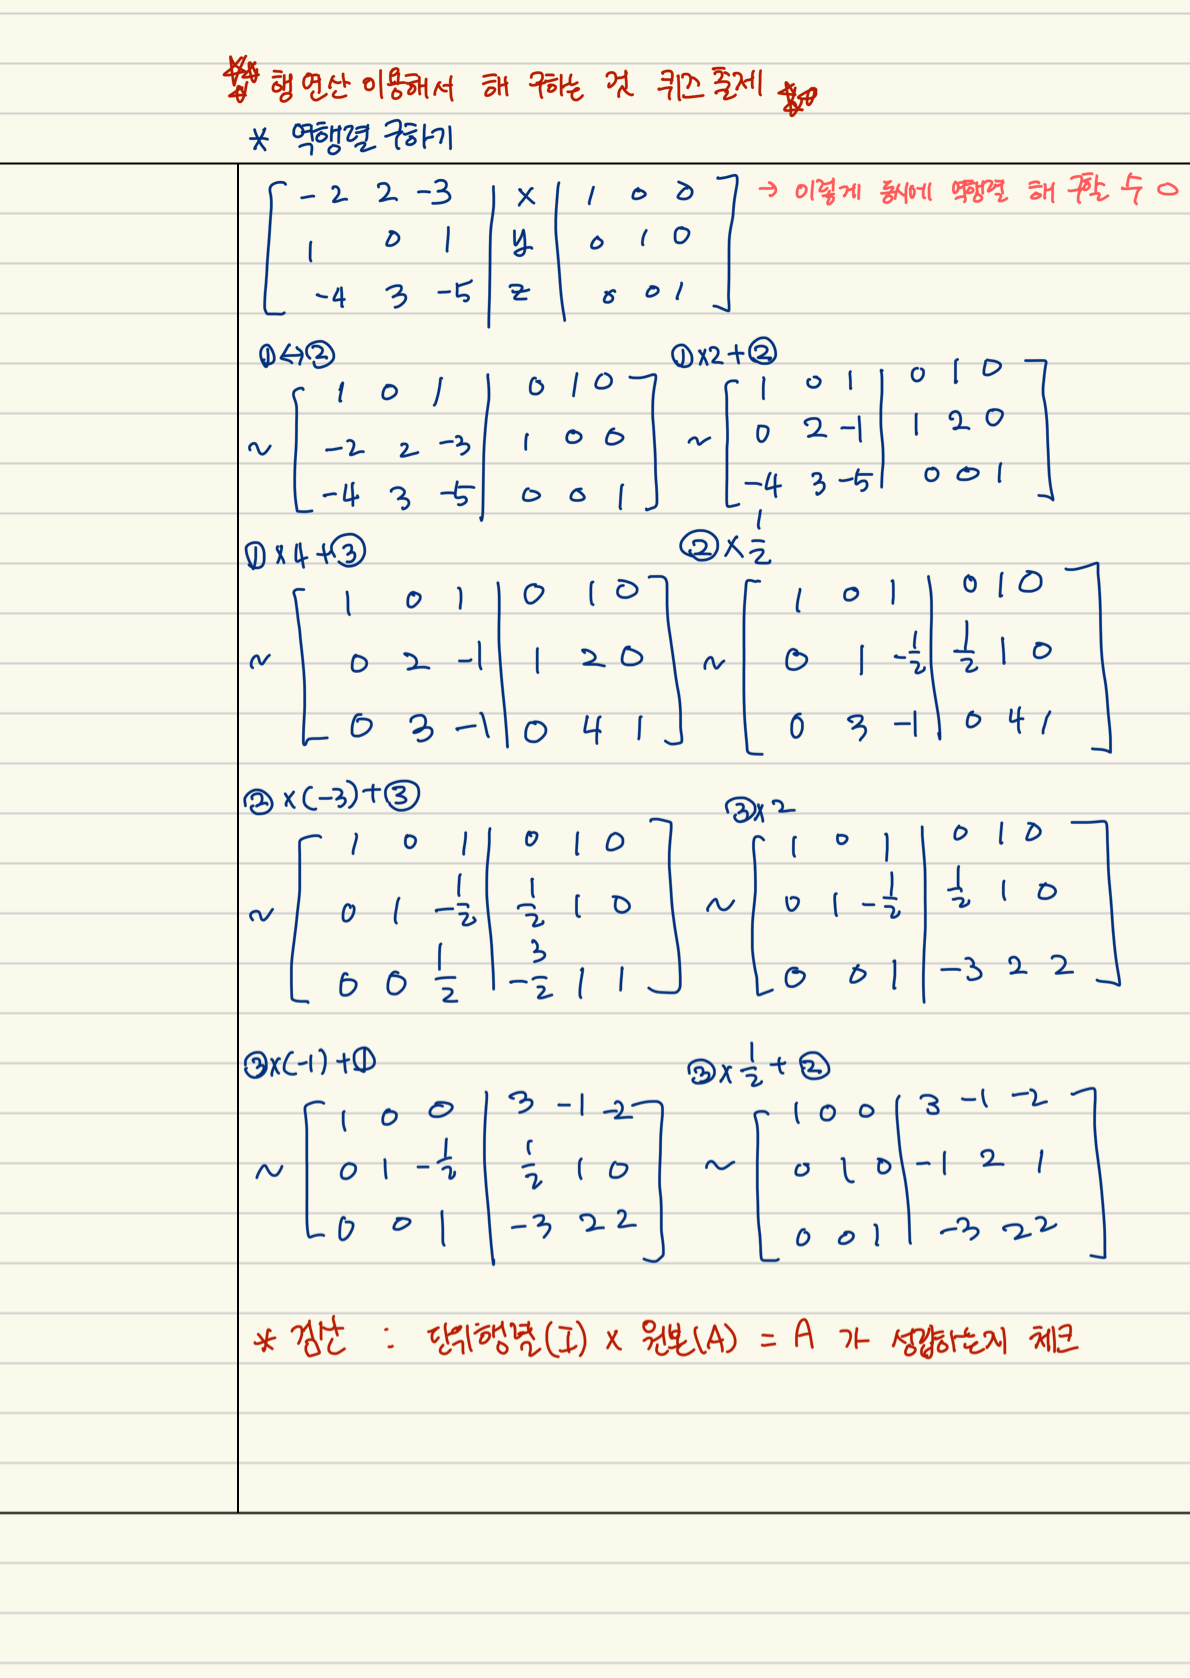 행 연산 이용해서 해 구하는 것 퀴즈 출제
* 역행렬 구하기
-2 2 -3 | x | 1 0 0 → 이렇게 동시에 역행렬 해 구할 수 ○
1 0 1 | y | 0 1 0
-4 3 -5 | z | 0 0 1
①↔②
~
1 0 1 | 0 1 0
-2 2 -3 | 1 0 0
-4 3 -5 | 0 0 1
①×2+②
~
1 0 1 | 0 1 0
0 2 -1 | 1 2 0
-4 3 -5 | 0 0 1
①×4+③
~
1 0 1 | 0 1 0
0 2 -1 | 1 2 0
0 3 -1 | 0 4 1
②×1/2
~
1 0 1 | 0 1 0
0 1 -1/2 | 1/2 1 0
0 3 -1 | 0 4 1
②×(-3)+③
~
1 0 1 | 0 1 0
0 1 -1/2 | 1/2 1 0
0 0 1/2 | -3/2 1 1
③×2
~
1 0 1 | 0 1 0
0 1 -1/2 | 1/2 1 0
0 0 1 | -3 2 2
③×(-1)+①
~
1 0 0 | 3 -1 -2
0 1 -1/2 | 1/2 1 0
0 0 1 | -3 2 2
③×1/2+②
~
1 0 0 | 3 -1 -2
0 1 0 | -1 2 1
0 0 1 | -3 2 2
* 검산 : 단위행렬(I) × 원본(A) = A 가 성립하는지 체크